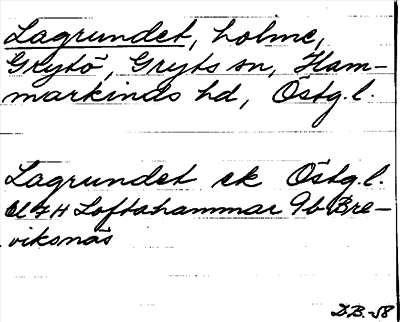 Lagrundet, holme,
Grytö, Gryts sn, Ham-
markinds hd, Östg.l.
Lagrundet ek Östg.l.
bl 7H Loftahammar 9b Bre-
viksnäs
D.B.-58